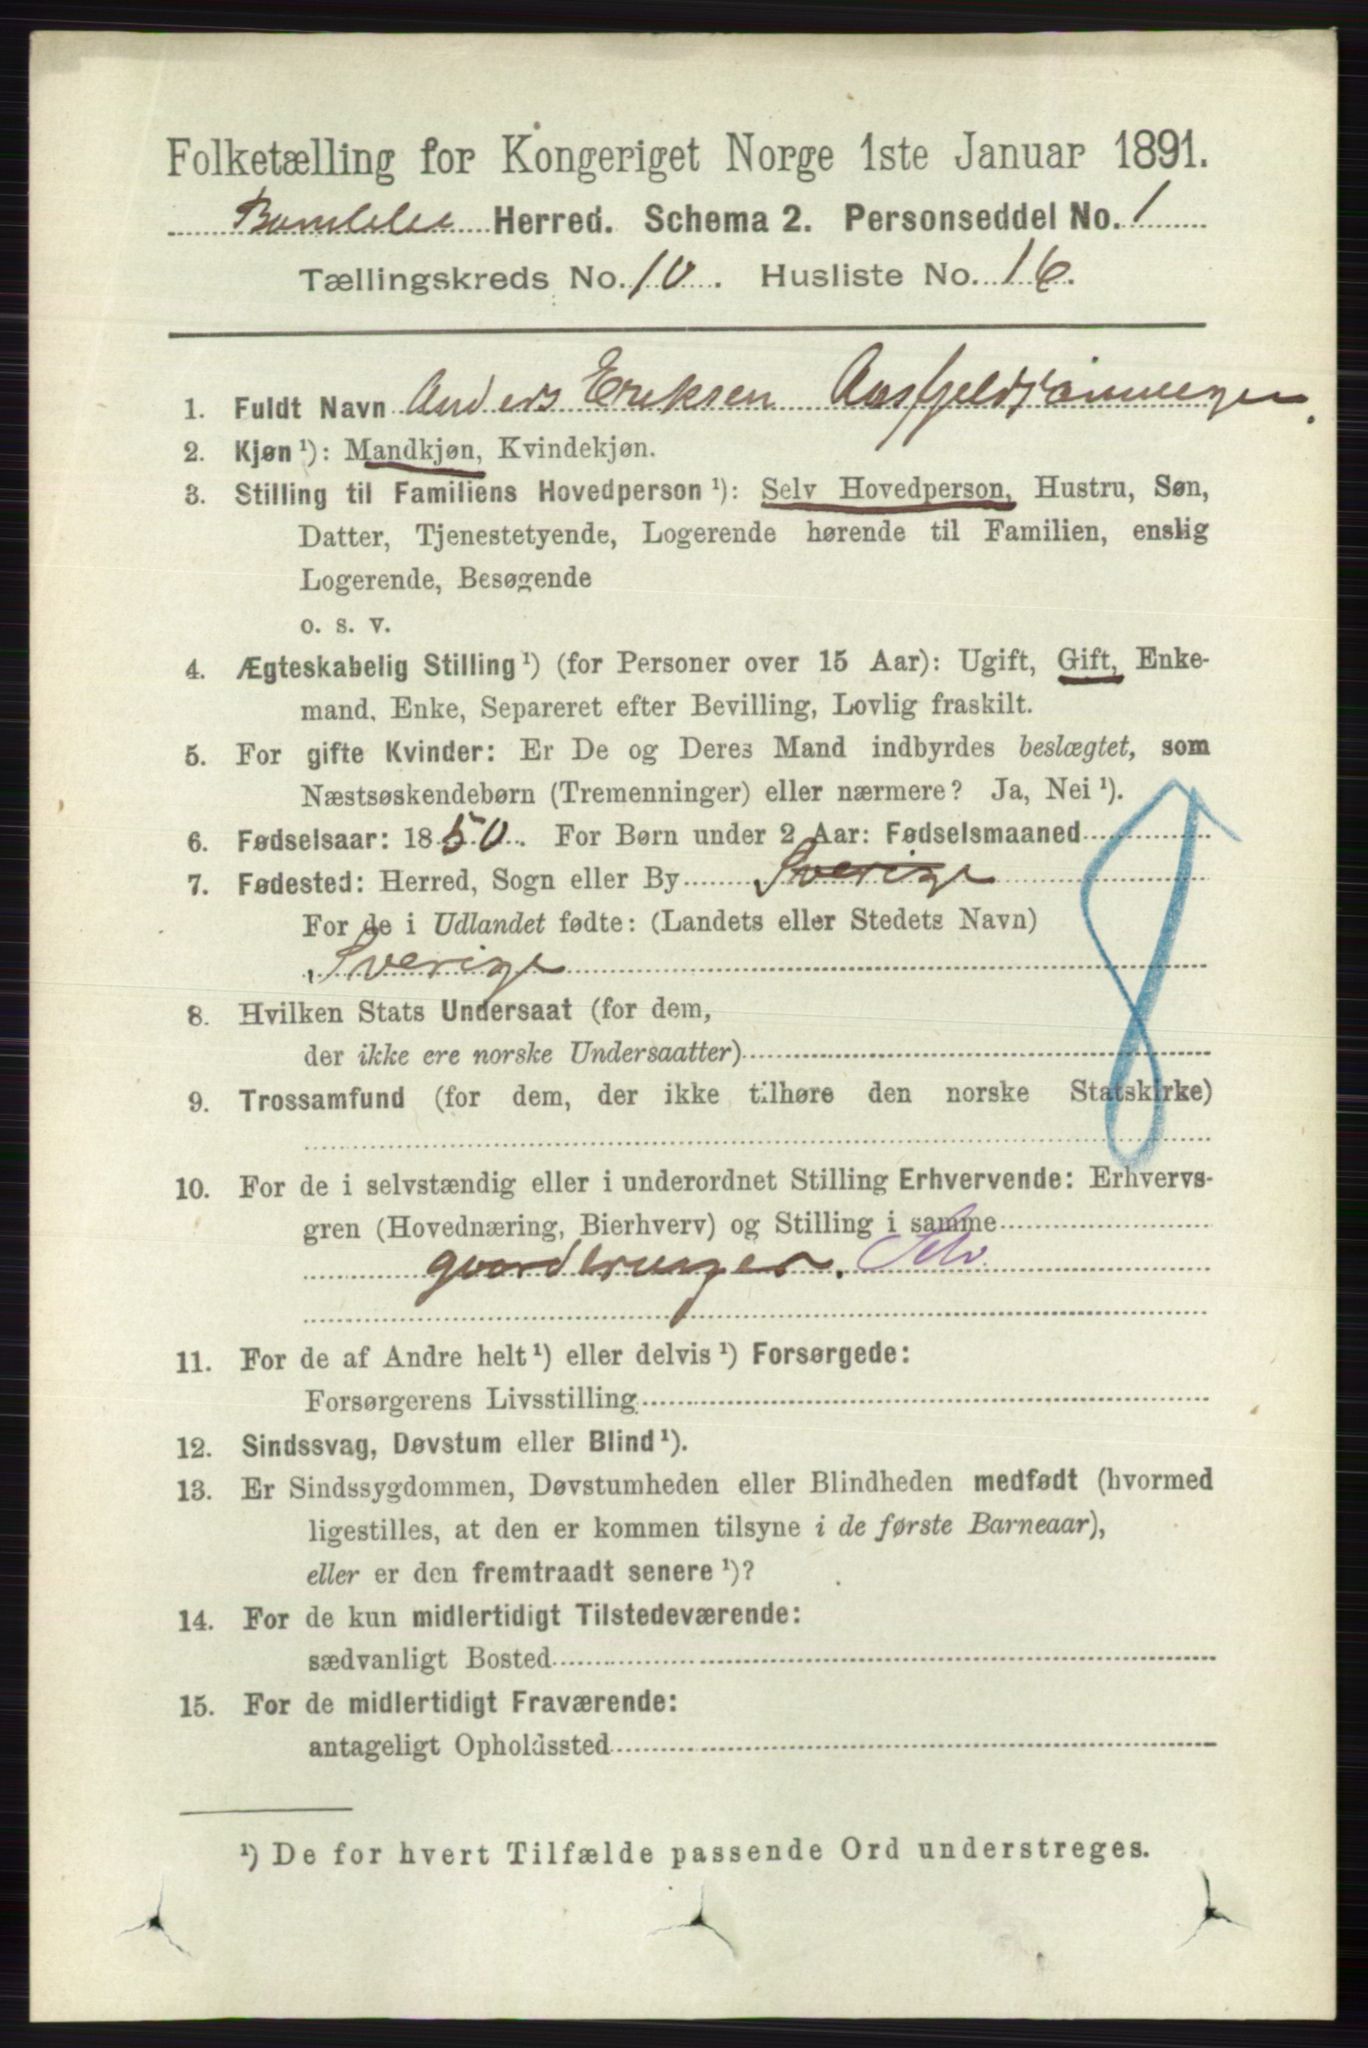 Folketælling for Kongeriget Norge 1ste Januar 1891.
Bamble Herred. Schema 2. Personseddel No. 1
Tællingskreds No. 10. Husliste No. 16.
1. Fuldt Navn Anders Eriksen
2. Kjøn ¹): Mandkjøn, Kvindekjøn.
3. Stilling til Familiens Hovedperson ¹): Selv Hovedperson, Hustru, Søn,
Datter, Tjenestetyende, Logerende hørende til Familien, enslig
Logerende, Besøgende
o. s. v.
4. Ægteskabelig Stilling ¹) (for Personer over 15 Aar): Ugift, Gift, Enke-
mand, Enke, Separeret efter Bevilling, Lovlig fraskilt.
5. For gifte Kvinder: Er De og Deres Mand indbyrdes beslægtet, som
Næstsøskendebørn (Tremenninger) eller nærmere? Ja, Nei ¹).
6. Fødselsaar: 1850. For Børn under 2 Aar: Fødselsmaaned
7. Fødested: Herred, Sogn eller By Sverige
For de i Udlandet fødte: (Landets eller Stedets Navn)
Sverige
8. Hvilken Stats Undersaat (for dem,
der ikke ere norske Undersaatter)
9. Trossamfund (for dem, der ikke tilhøre den norske Statskirke)
10. For de i selvstændig eller i underordnet Stilling Erhvervende: Erhvervs-
gren (Hovednæring, Bierhverv) og Stilling i samme
gaardbruger. Selv
11. For de af Andre helt ¹) eller delvis ¹) Forsørgede:
Forsørgerens Livsstilling
12. Sindssvag, Døvstum eller Blind ¹).
13. Er Sindssygdommen, Døvstumheden eller Blindheden medfødt (hvormed
ligestilles, at den er kommen tilsyne i de første Barneaar),
eller er den fremtraadt senere ¹)?
14. For de kun midlertidigt Tilstedeværende:
sædvanligt Bosted
15. For de midlertidigt Fraværende:
antageligt Opholdssted
¹) De for hvert Tilfælde passende Ord understreges.